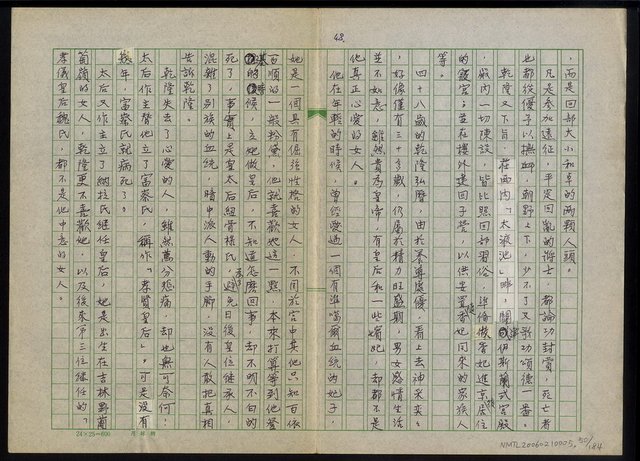 48.
，而是回部大小和卓的兩顆人頭。
凡是參加遠征，平定回亂的將士，都論功封賞，死亡者
也都從優予以撫卹，朝野上下，少不了又歌功頌德一番。
乾隆又下旨，在西內「太液池」畔，開闢伊斯蘭式宮殿
，殿內一切陳設，皆比照回部習俗，準備做香妃進京後居住
的寢宮；並在牆外建回子營，以供安置香妃同來的家族人
等。
四十八歲的乾隆弘曆，由於養尊處優，看上去神采奕奕，
好像僅有三十多歲，仍屬於精力旺盛期，男女感情生活
並不如意，雖然貴為皇帝，有皇后和一些嬪妃，却都不是
他真正心愛的女人。
他在年輕的時候，曾經愛過一個有準噶爾血統的妃子，
她是一個具有倔強性格的女人，不同於宮中其他只知百依
百順的一般粉黛，他就喜歡她這一點，本來打算等到他登
基的時候，立她做皇后，不知道怎麼回事，却不明不白的
死了，事實上是皇太后鈕骨祿氏，為避免日後皇位繼承人，
混雜了別族的血統，暗中派人動的手腳，沒有人敢把真相
告訴乾隆。
乾隆失去了心愛的人，雖然萬分悲痛，却也無可奈何；
太后作主替他立了富察氏，稱作「孝賢皇后」。可是沒有
幾年，富察氏就病死了。
太后又作主立了納拉氏繼任皇后，她是出生在吉林野蘭
箇嶺的女人，乾隆更不喜歡她，以及後來第三位繼任的「
孝儀皇后魏氏，都不是他中意的女人。
24×25=600
NMTL20060210005, 50/184